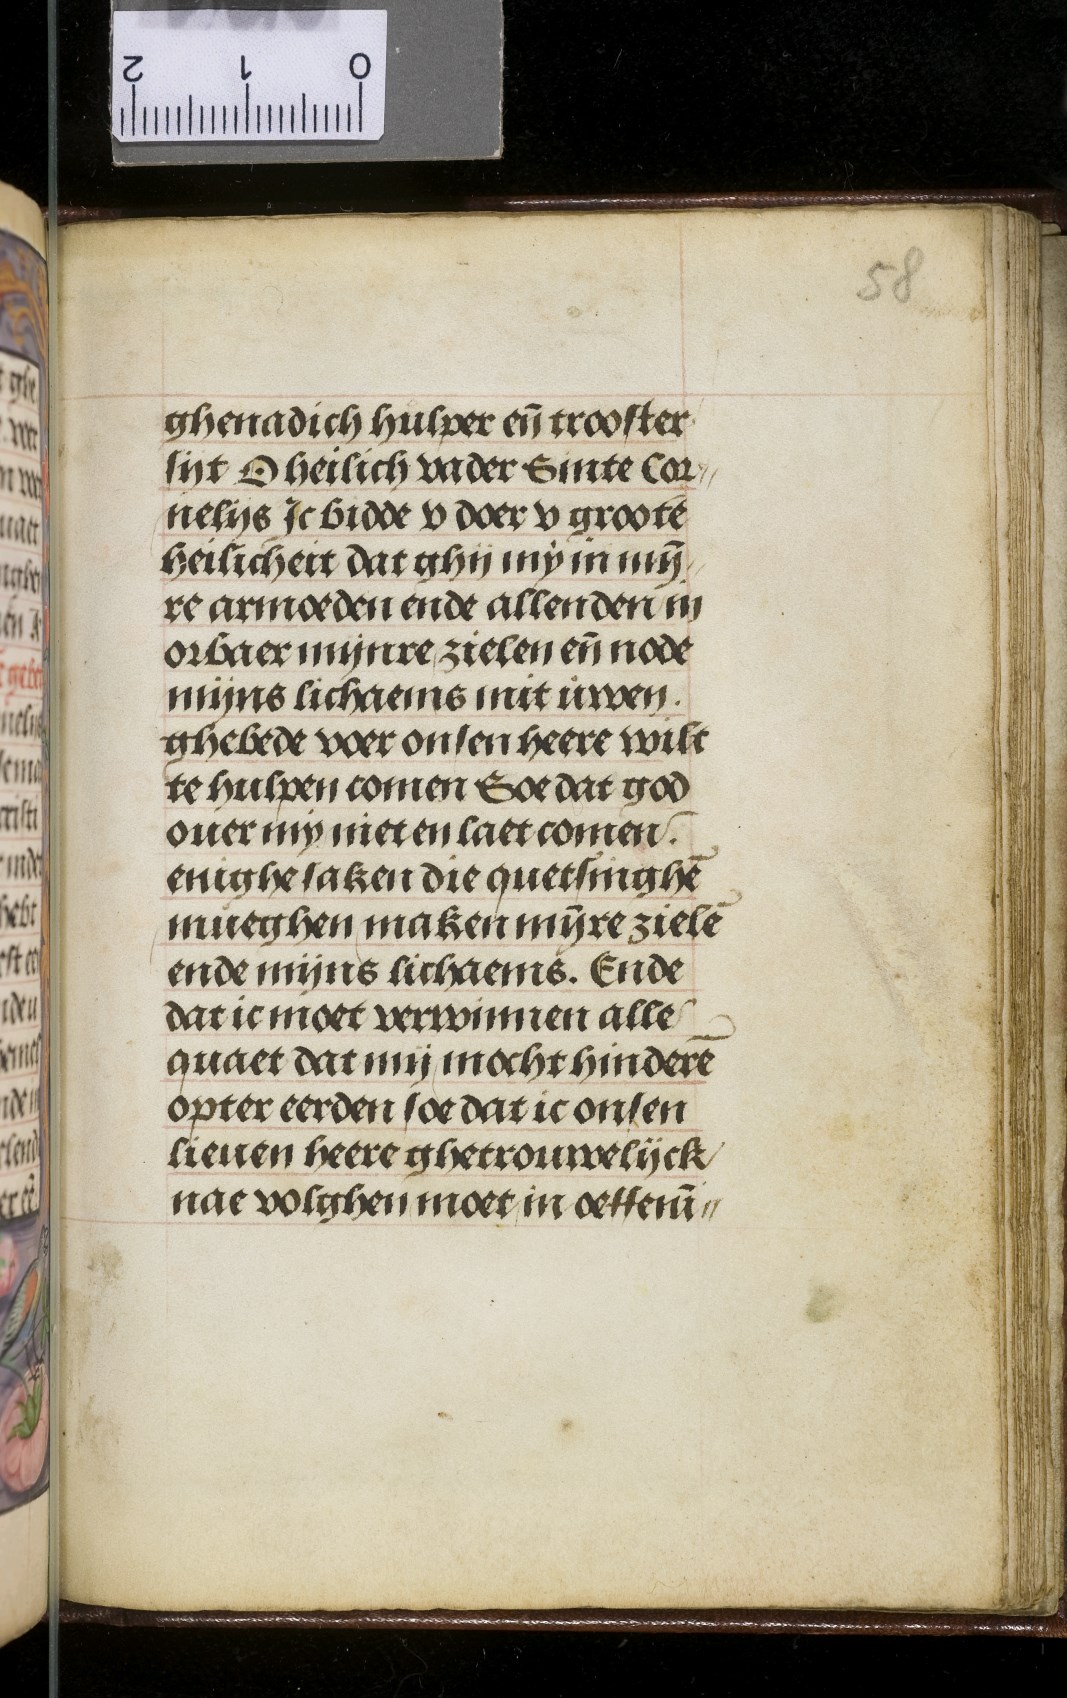 58
ghenadich hulper en̄ trooster
sijt O heilich vader Sinte Cor
nelijs Ic bidde v doer v grootē
heilicheit dat ghij mÿ in mȳ
re armoeden ende allenden in
orbaer mijnre zielen en̄ node
mijns lichaems mit uwen.
ghebede voer onsen heere wilt
te hulpen comen Soe dat god
ouer mij niet en laet comen.
enighe saken die quetsinghē
mueghen maken mȳre zielē
ende mijns lichaems. Ende
dat ic moet verwinnen alle
quaet dat mij mocht hinderē
opter eerden soe dat ic onsen
lieuen heere ghetrouwelijck
nae volghen moet in oeffenī